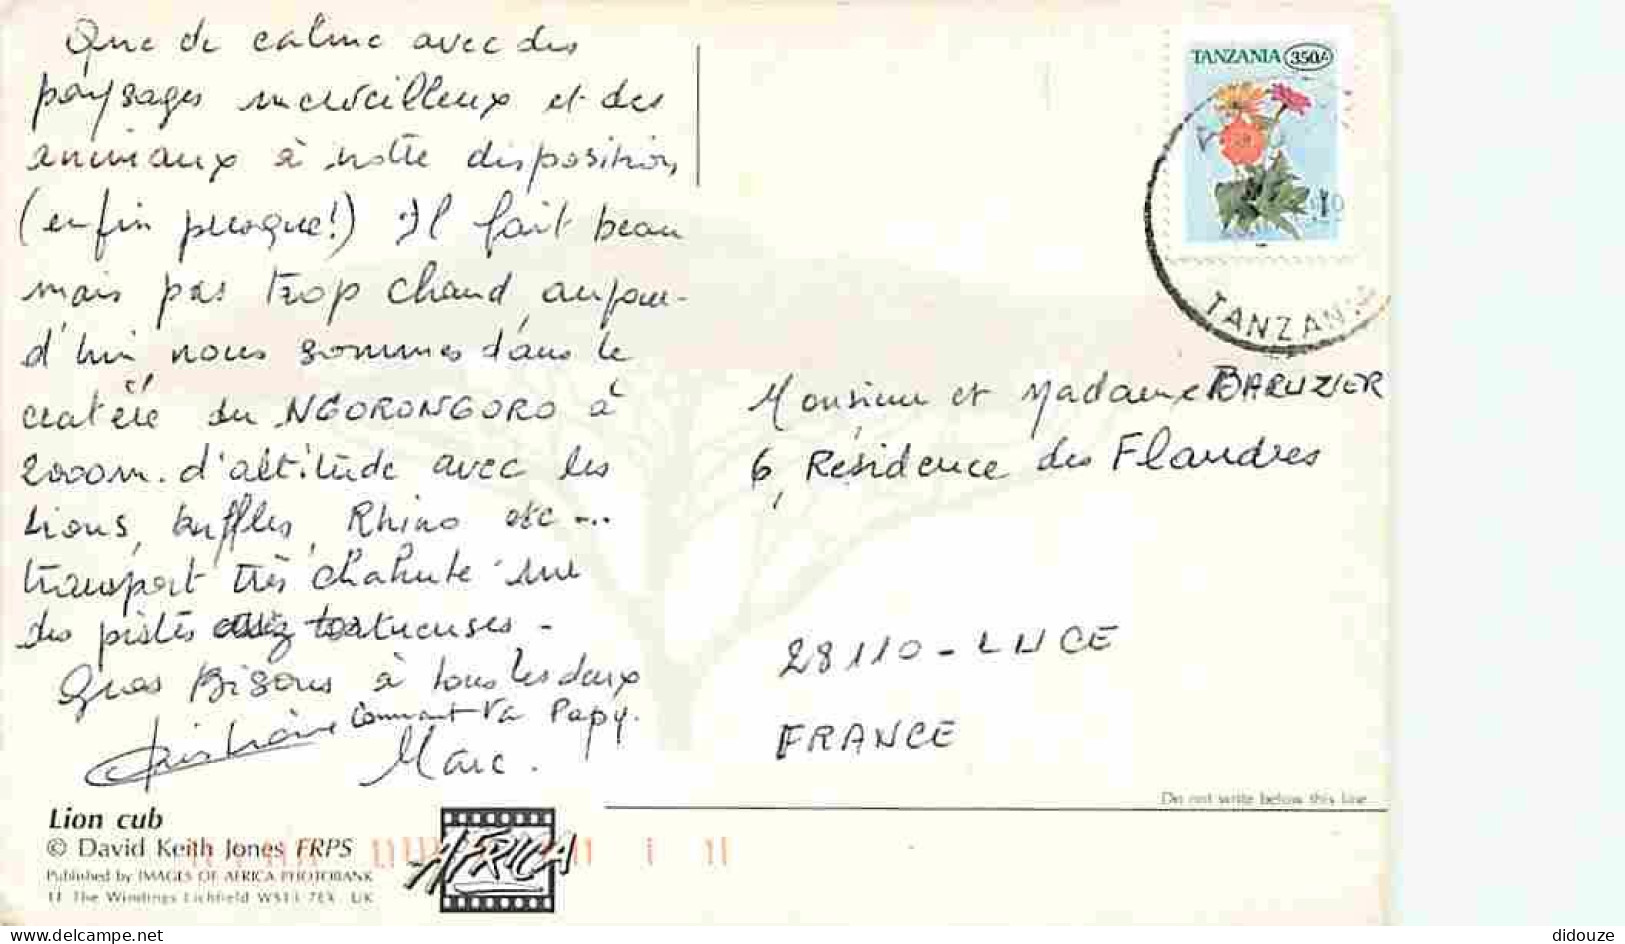 Que de calme avec des
paysages merveilleux et des
animaux à notre disposition,
(enfin presque!) Il fait beau
mais pas trop chaud, aujour-
d'hui nous sommes dans le
cratère du NGORONGORO à
2000m. d'altitude avec les
Lions, buffles, Rhino etc...
transport très chahuté sur
des pistes assez tortueuses -
Gros Bisous à tous les deux
Christiane Comment va Papy.
Marc.
Lion cub
© David Keith Jones FRPS
Published by IMAGES OF AFRICA PHOTOBANK
11 The Windings Lichfield WS13 7EX UK
AFRICA
TANZANIA 350/-
TANZANIA
Monsieur et Madame BARUZIER
6, Résidence des Flandres
28110 - LUCE
FRANCE
Do not write below this line
delcampe.net
didouze